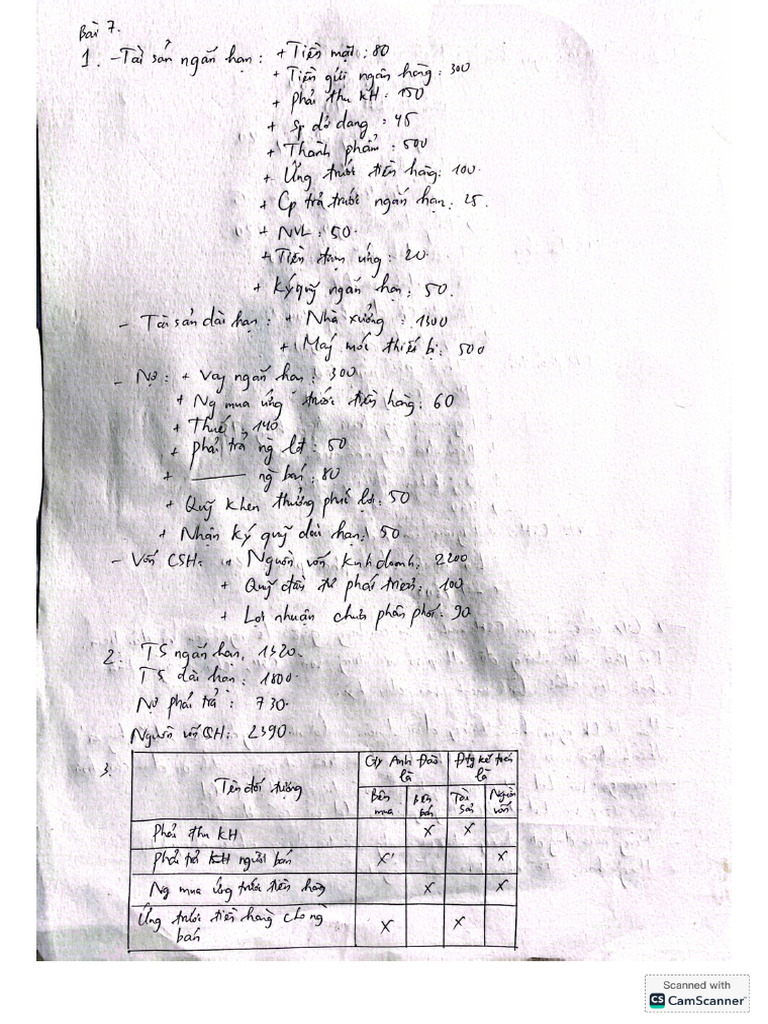 Bài 7.
1. - Tài sản ngắn hạn: + Tiền mặt: 80
+ Tiền gửi ngân hàng: 300
+ Phải thu KH: 150
+ Sp dở dang: 45
+ Thành phẩm: 500
+ Ứng trước tiền hàng: 100.
+ Cp trả trước ngắn hạn: 25.
+ NVL: 50.
+ Tiền tạm ứng: 20.
+ Ký quỹ ngắn hạn: 50.
- Tài sản dài hạn: + Nhà xưởng: 1300
+ Máy móc thiết bị: 500
- Nợ: + Vay ngắn hạn: 300
+ Ng mua ứng trước tiền hàng: 60
+ Thuế: 140
+ Phải trả ng lđ: 50
+ ——— ng bán: 80
+ Quỹ khen thưởng phúc lợi: 50
+ Nhận ký quỹ dài hạn: 50.
- Vốn CSH: + Nguồn vốn kinh doanh: 2200
+ Quỹ đầu tư phát triển: 100
+ Lợi nhuận chưa phân phối: 90
2. TS ngắn hạn: 1320.
TS dài hạn: 1800.
Nợ phải trả: 730.
Nguồn vốn CSH: 2390.
3.
Tên đối tượng
Cty Anh Đào là
Đtg kế toán là
Bên mua
Bên bán
Tài sản
Nguồn vốn
Phải thu KH x x
Phải trả KH người bán x x
Ng mua ứng trước tiền hàng x x
Ứng trước tiền hàng cho ng bán x x
Scanned with
CS CamScanner